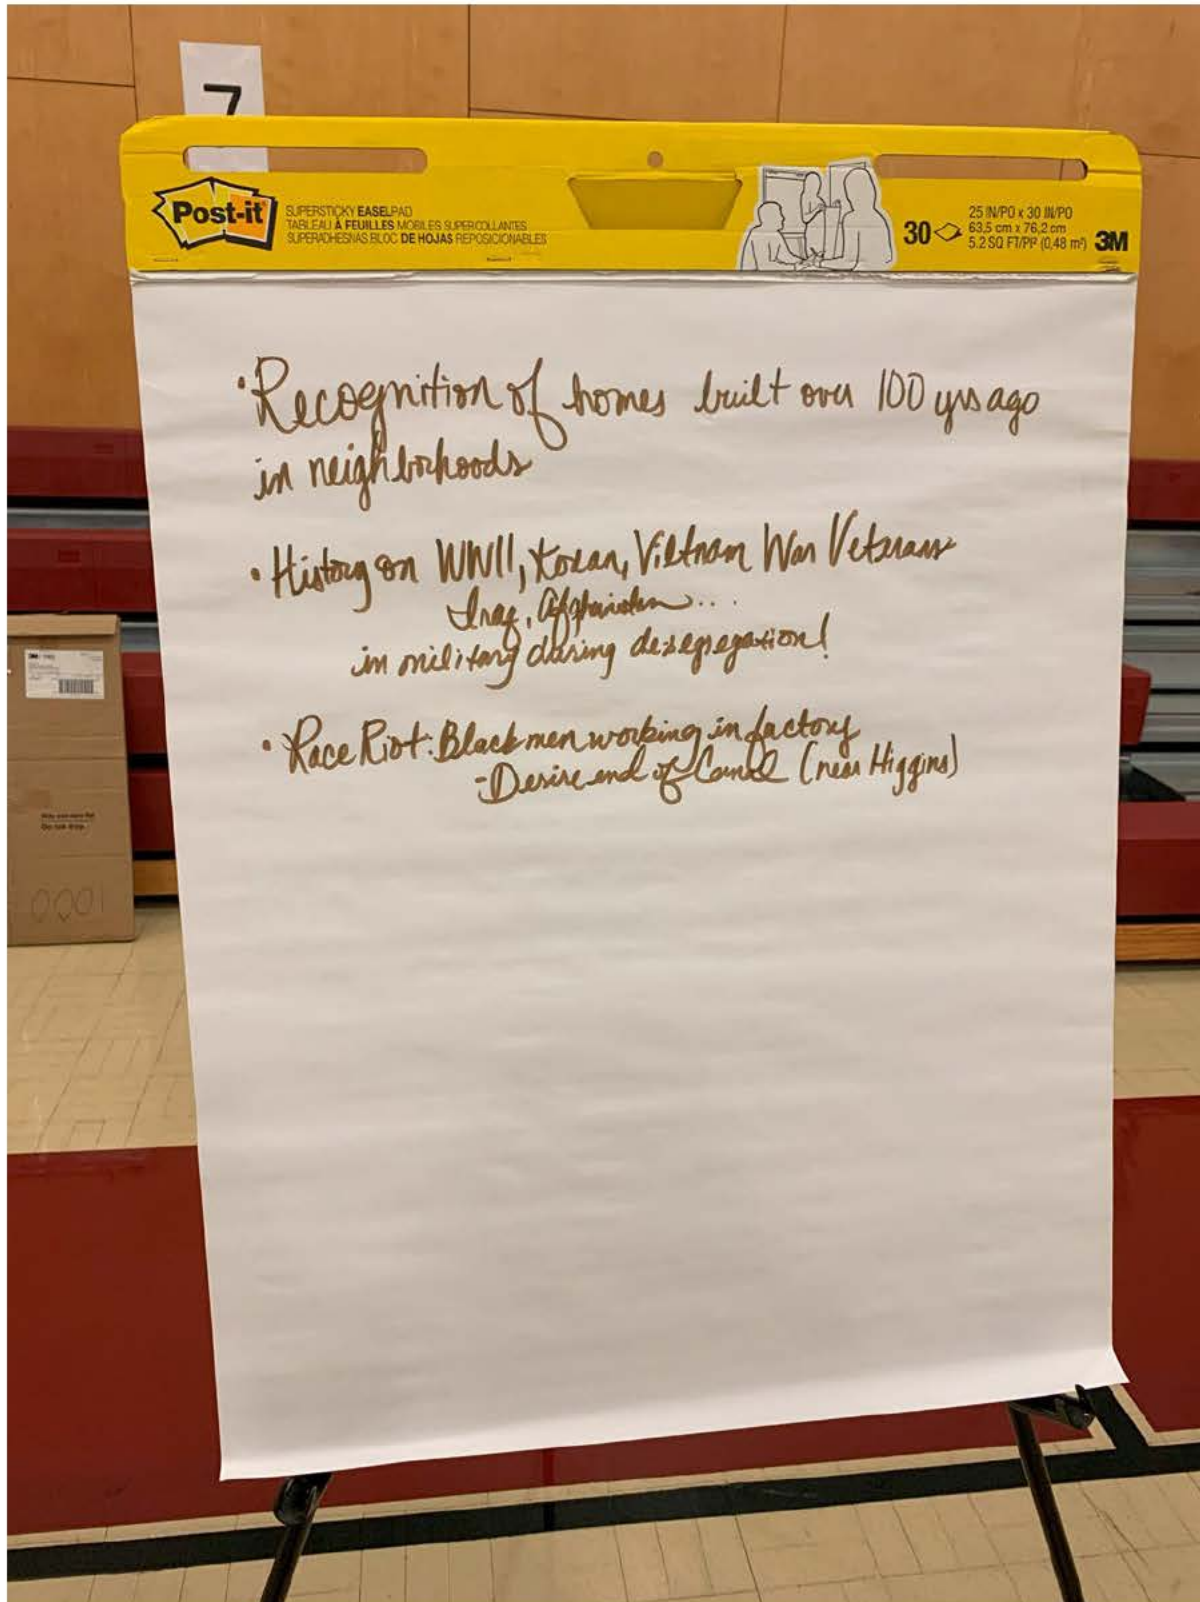 7
Post-it
SUPERSTICKY EASELPAD
TABLEAU À FEUILLES MOBILES SUPERCOLLANTES
SUPERADHESNAS BLOC DE HOJAS REPOSICIONABLES
30
25 IN/PO x 30 IN/PO
63,5 cm x 76,2 cm
5.2 SQ FT/PI² (0,48 m²)
3M
• Recognition of homes built over 100 yrs ago
in neighborhoods
• History on WWII, Korean, Vietnam War Veterans
Iraq, Afghanistan...
in military during desegregation!
• Race Riot: Black men working in factory
- Desire end of Canal (near Higgins)
3M
0001